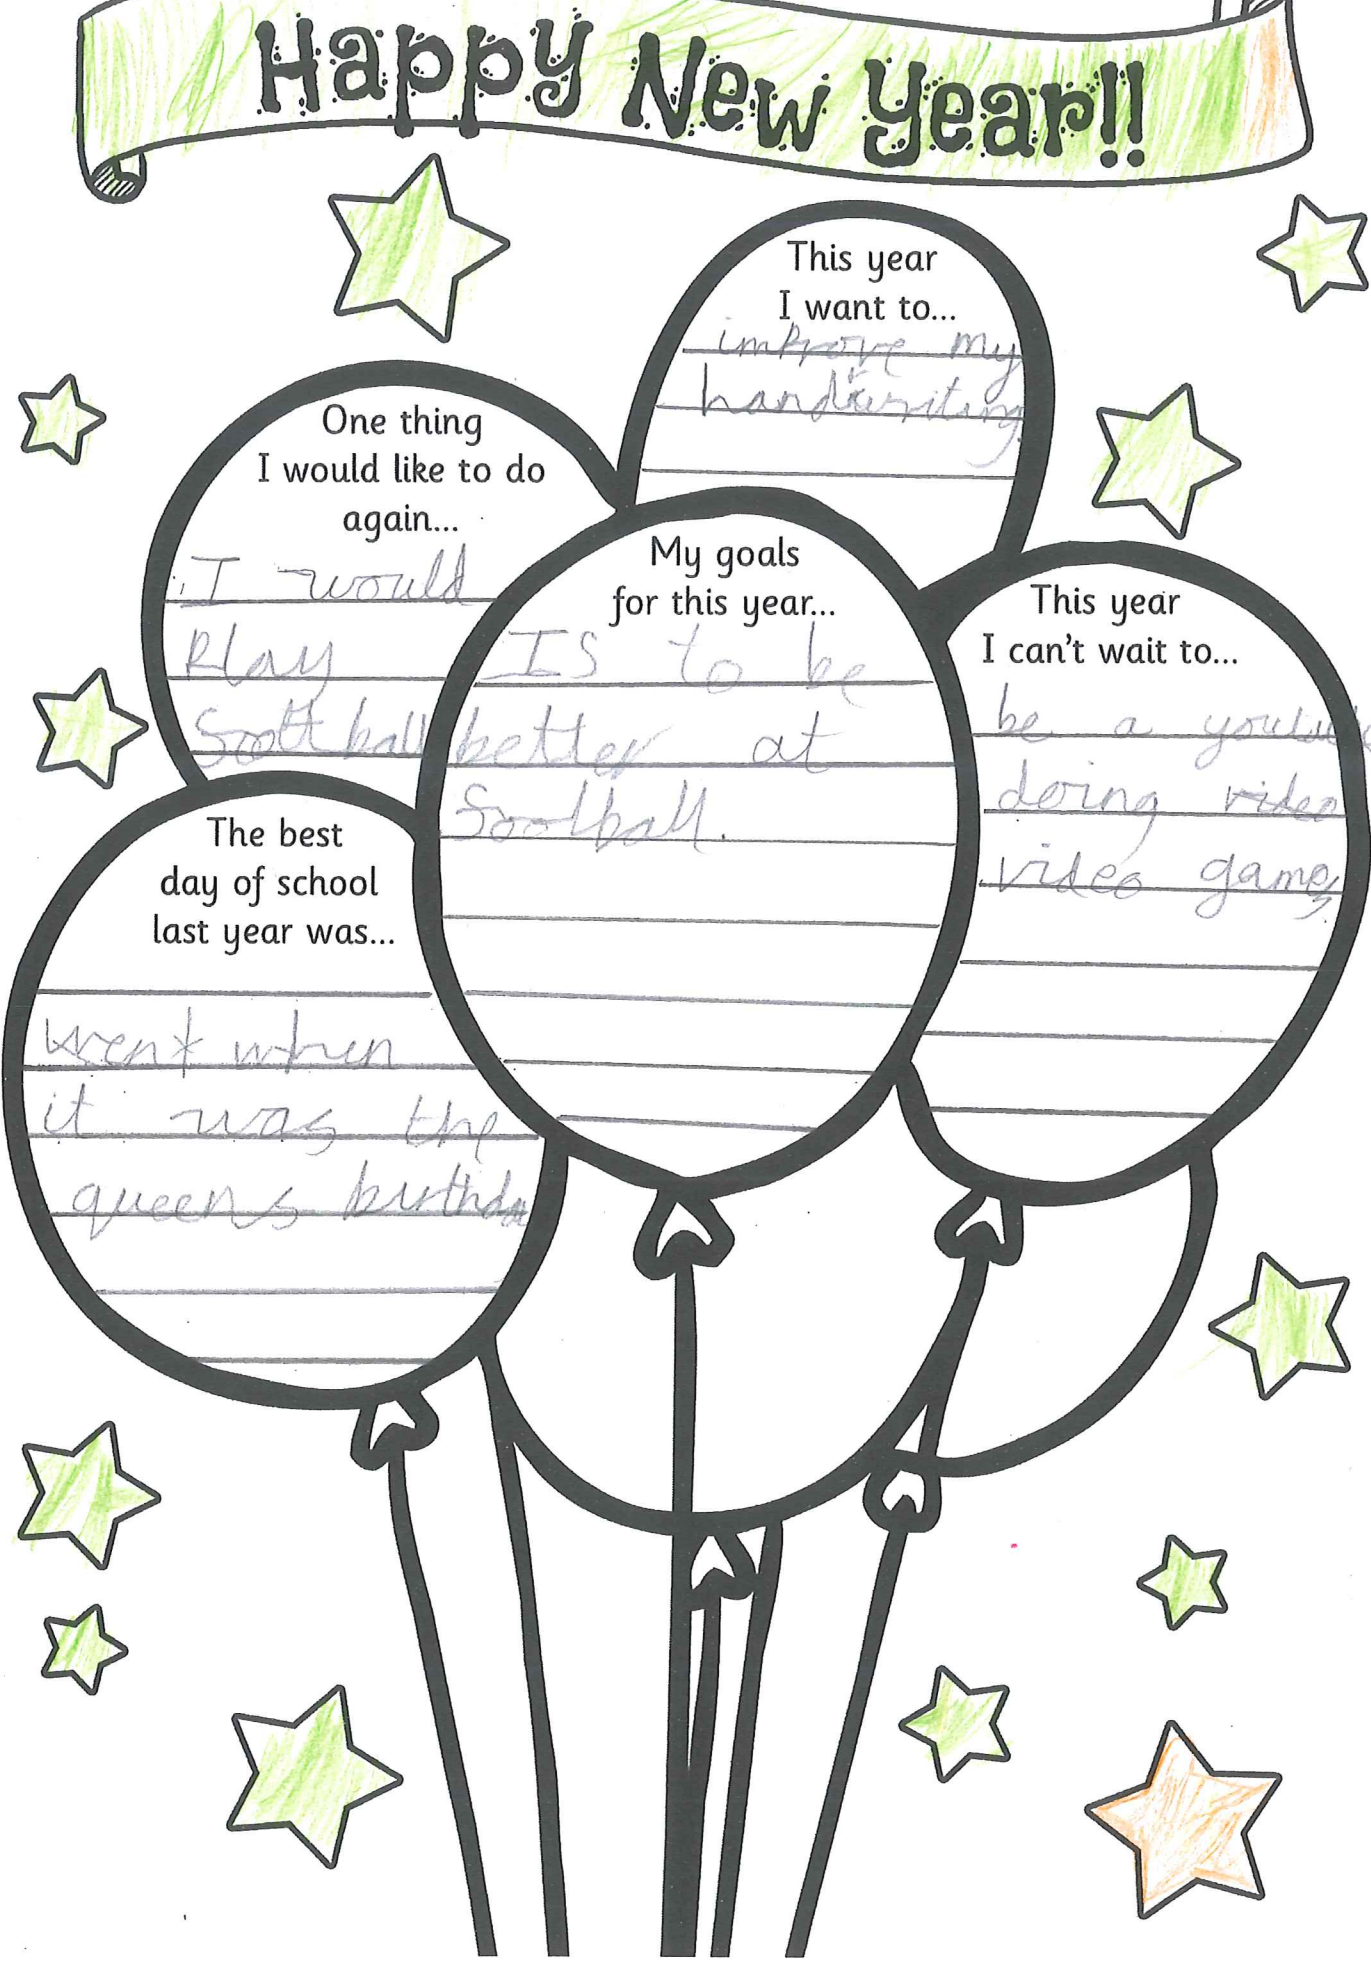 Happy New Year!!
This year
I want to...
improve my
handwriting
One thing
I would like to do
again...
I would
Play
Football
My goals
for this year...
IS to be
better at
Football.
This year
I can't wait to...
be a youtube
doing video
video games
The best
day of school
last year was...
went when
it was the
queens birthda